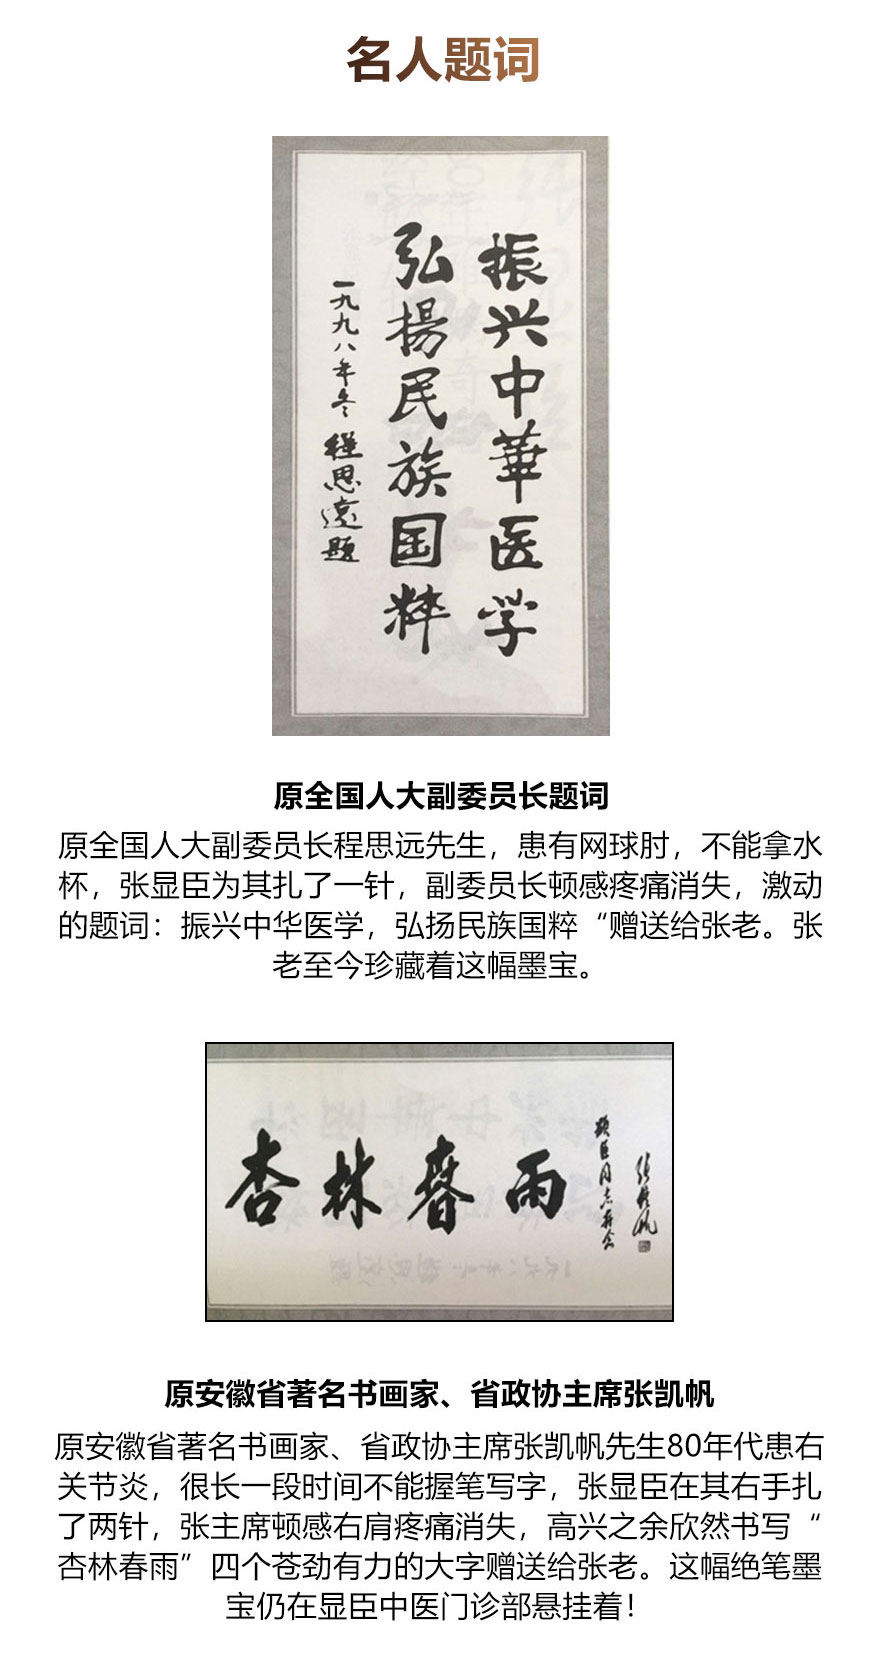 名人题词
振兴中華医学
弘揚民族国粹
一九九八年冬 程思遠题
原全国人大副委员长题词
原全国人大副委员长程思远先生，患有网球肘，不能拿水
杯，张显臣为其扎了一针，副委员长顿感疼痛消失，激动
的题词：振兴中华医学，弘扬民族国粹“赠送给张老。张
老至今珍藏着这幅墨宝。
杏林春雨
顕臣同志存念
张凯帆
原安徽省著名书画家、省政协主席张凯帆
原安徽省著名书画家、省政协主席张凯帆先生80年代患右
关节炎，很长一段时间不能握笔写字，张显臣在其右手扎
了两针，张主席顿感右肩疼痛消失，高兴之余欣然书写“
杏林春雨”四个苍劲有力的大字赠送给张老。这幅绝笔墨
宝仍在显臣中医门诊部悬挂着！